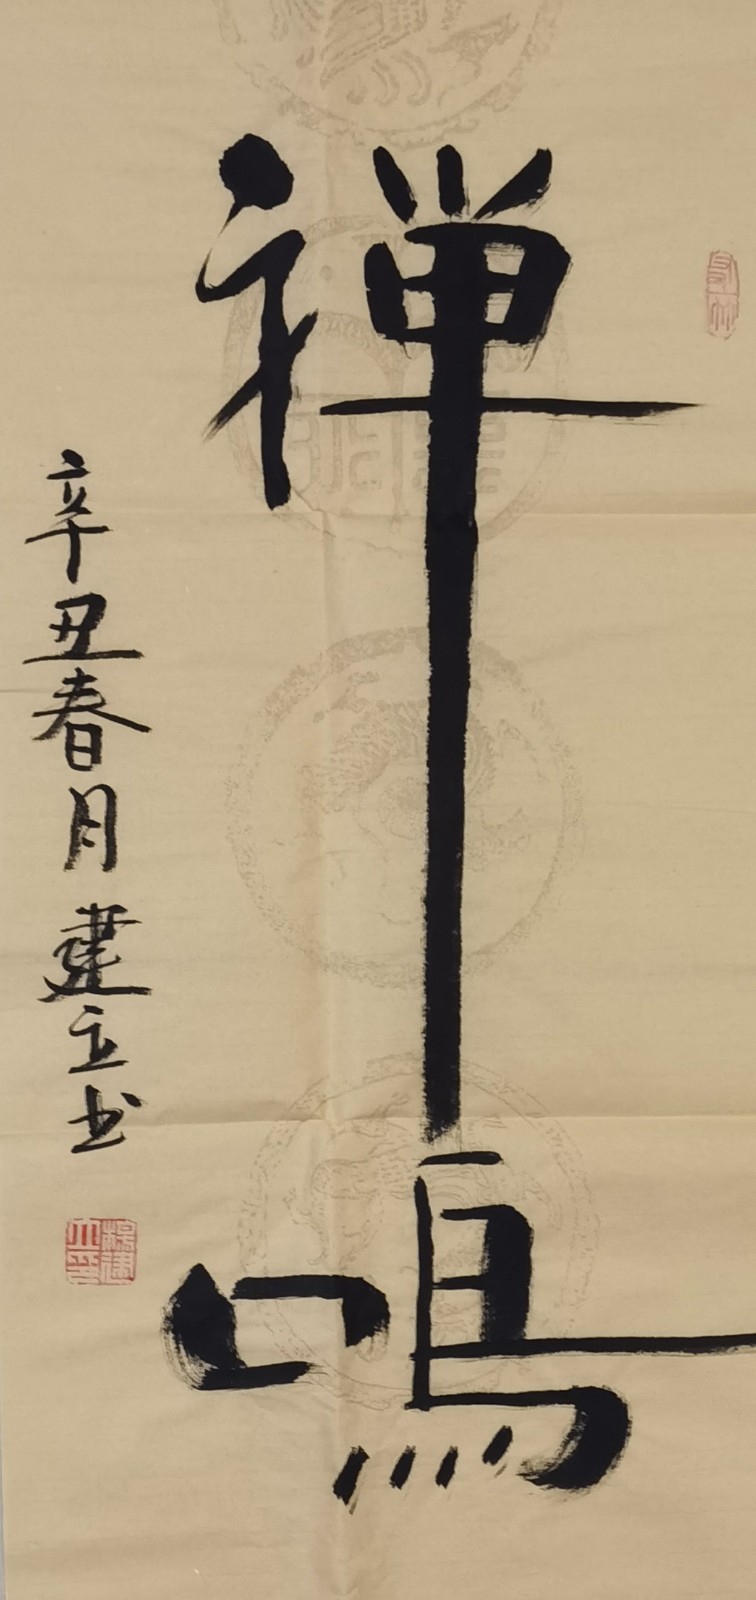 禅鳴
辛丑春月建立书